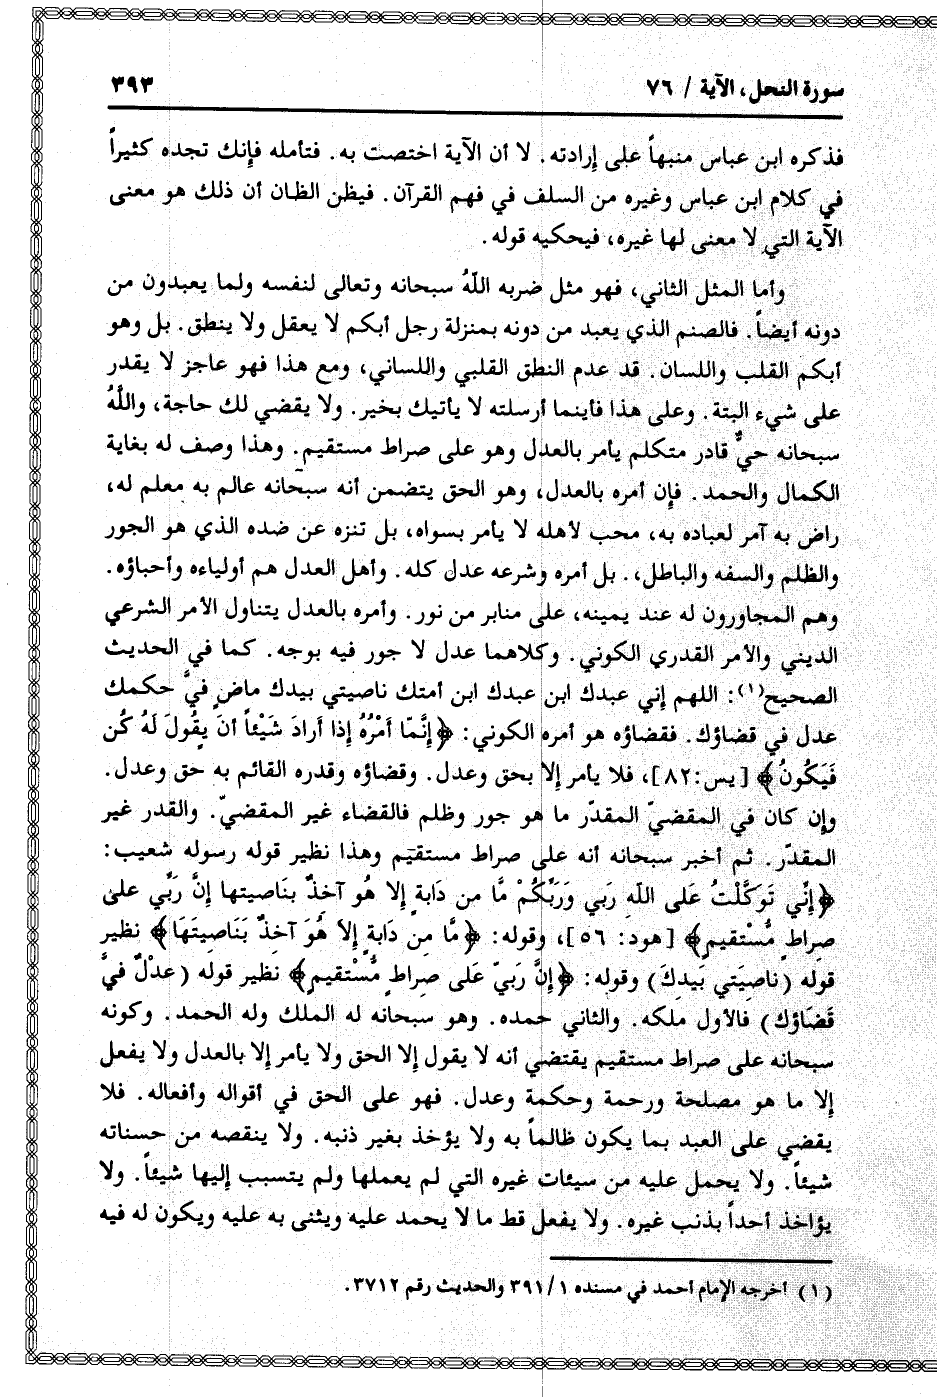 سورة النحل، الآية / ٧٦
٣٩٣
فذكره ابن عباس منبهاً على إرادته. لا أن الآية اختصت به. فتأمله فإنك تجده كثيراً
في كلام ابن عباس وغيره من السلف في فهم القرآن. فيظن الظان أن ذلك هو معنى
الآية التي لا معنى لها غيره، فيحكيه قوله.
وأما المثل الثاني، فهو مثل ضربه اللّهُ سبحانه وتعالى لنفسه ولما يعبدون من
دونه أيضاً. فالصنم الذي يعبد من دونه بمنزلة رجل أبكم لا يعقل ولا ينطق. بل وهو
أبكم القلب واللسان. قد عدم النطق القلبي واللساني، ومع هذا فهو عاجز لا يقدر
على شيء البتة. وعلى هذا فأينما أرسلته لا يأتيك بخير. ولا يقضي لك حاجة، واللَّهُ
سبحانه حيٌّ قادر متكلم يأمر بالعدل وهو على صراط مستقيم. وهذا وصف له بغاية
الكمال والحمد. فإن أمره بالعدل، وهو الحق يتضمن أنه سبحانه عالم به معلم له،
راض به آمر لعباده به، محب لأهله لا يأمر بسواه، بل تنزه عن ضده الذي هو الجور
والظلم والسفه والباطل،. بل أمره وشرعه عدل كله. وأهل العدل هم أولياءه وأحباؤه.
وهم المجاورون له عند يمينه، على منابر من نور. وأمره بالعدل يتناول الأمر الشرعي
الديني والأمر القدري الكوني. وكلاهما عدل لا جور فيه بوجه. كما في الحديث
الصحيح(١): اللهم إني عبدك ابن عبدك ابن أمتك ناصيتي بيدك ماضٍ فيَّ حكمك
عدل في قضاؤك. فقضاؤه هو أمره الكوني: ﴿إِنَّمَا أَمْرُهُ إِذَا أَرَادَ شَيْئاً أَنَ يَقُولَ لَهُ كُن
فَيَكُونُ﴾ [يس:٨٢]، فلا يأمر إلا بحق وعدل. وقضاؤه وقدره القائم به حق وعدل.
وإن كان في المقضيّ المقدّر ما هو جور وظلم فالقضاء غير المقضيّ. والقدر غير
المقدّر. ثم أخبر سبحانه أنه على صراط مستقيم وهذا نظير قوله رسوله شعيب:
﴿إِنِّي تَوَكَّلْتُ عَلى اللّهِ رَبي وَرَبِّكُمْ مَّا من دَابةٍ إلا هُو آخذٌ بنَاصيتها إنَّ رَبِّي على
صراطٍ مُّسْتقيمٍ﴾ [هود: ٥٦]، وقوله: ﴿مَّا مِن دَابةٍ إلاَ هُوَ آخذٌ بَنَاصيَتَهَا﴾ نظير
قوله (ناصيَتي بَيدكَ) وقوله: ﴿إنَّ رَبيّ عَلى صراطٍ مُّسْتقيمٍ﴾ نظير قوله (عدْلٌ فيَّ
قَضَاؤك) فالأول ملكه. والثاني حمده. وهو سبحانه له الملك وله الحمد. وكونه
سبحانه على صراط مستقيم يقتضي أنه لا يقول إلا الحق ولا يأمر إلا بالعدل ولا يفعل
إلا ما هو مصلحة ورحمة وحكمة وعدل. فهو على الحق في أقواله وأفعاله. فلا
يقضي على العبد بما يكون ظالماً به ولا يؤخذ بغير ذنبه. ولا ينقصه من حسناته
شيئاً. ولا يحمل عليه من سيئات غيره التي لم يعملها ولم يتسبب إليها شيئاً. ولا
يؤاخذ أحداً بذنب غيره. ولا يفعل قط ما لا يحمد عليه ويثنى به عليه ويكون له فيه
(١) أخرجه الإمام أحمد في مسنده ٣٩١/١ والحديث رقم ٣٧١٢.